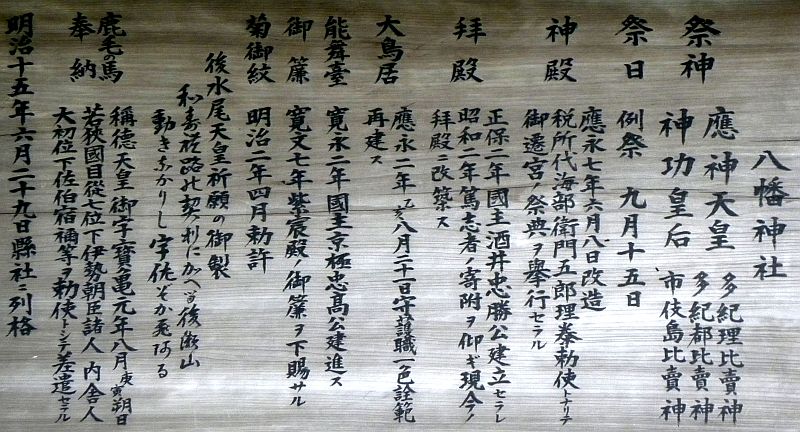 八幡神社
祭神 應神天皇 多紀理比賣神
多紀都比賣神
神功皇后 市伎島比賣神
祭日 例祭 九月十五日
神殿 應永七年六月八日改造
税所代海部衛門五郎理奉勅使トナリテ
御遷宮ノ祭典ヲ擧行セラル
拜殿 正保二年國主酒井忠勝公建立セラレ
昭和二年篤志者ノ寄附ヲ仰ギ現今ノ
拜殿ニ改築ス
大鳥居 應永二年乙亥八月二十一日守護職一色詮範
再建ス
能舞臺 寛永二年國主京極忠髙公建進ス
御簾 寛文七年紫宸殿ノ御簾ヲ下賜サル
菊御紋 明治二年四月勅許
後水尾天皇祈願の御製
動きなかりし宇佐
鹿毛の馬 稱德天皇御字寶亀元年八月庚寅朔日
奉納 若狹國目從七位下伊勢朝臣諸人内舎人
大初位下佐伯宿禰等ヲ勅使トシテ差遣セラル
明治十五年六月二十九日縣社ニ列格